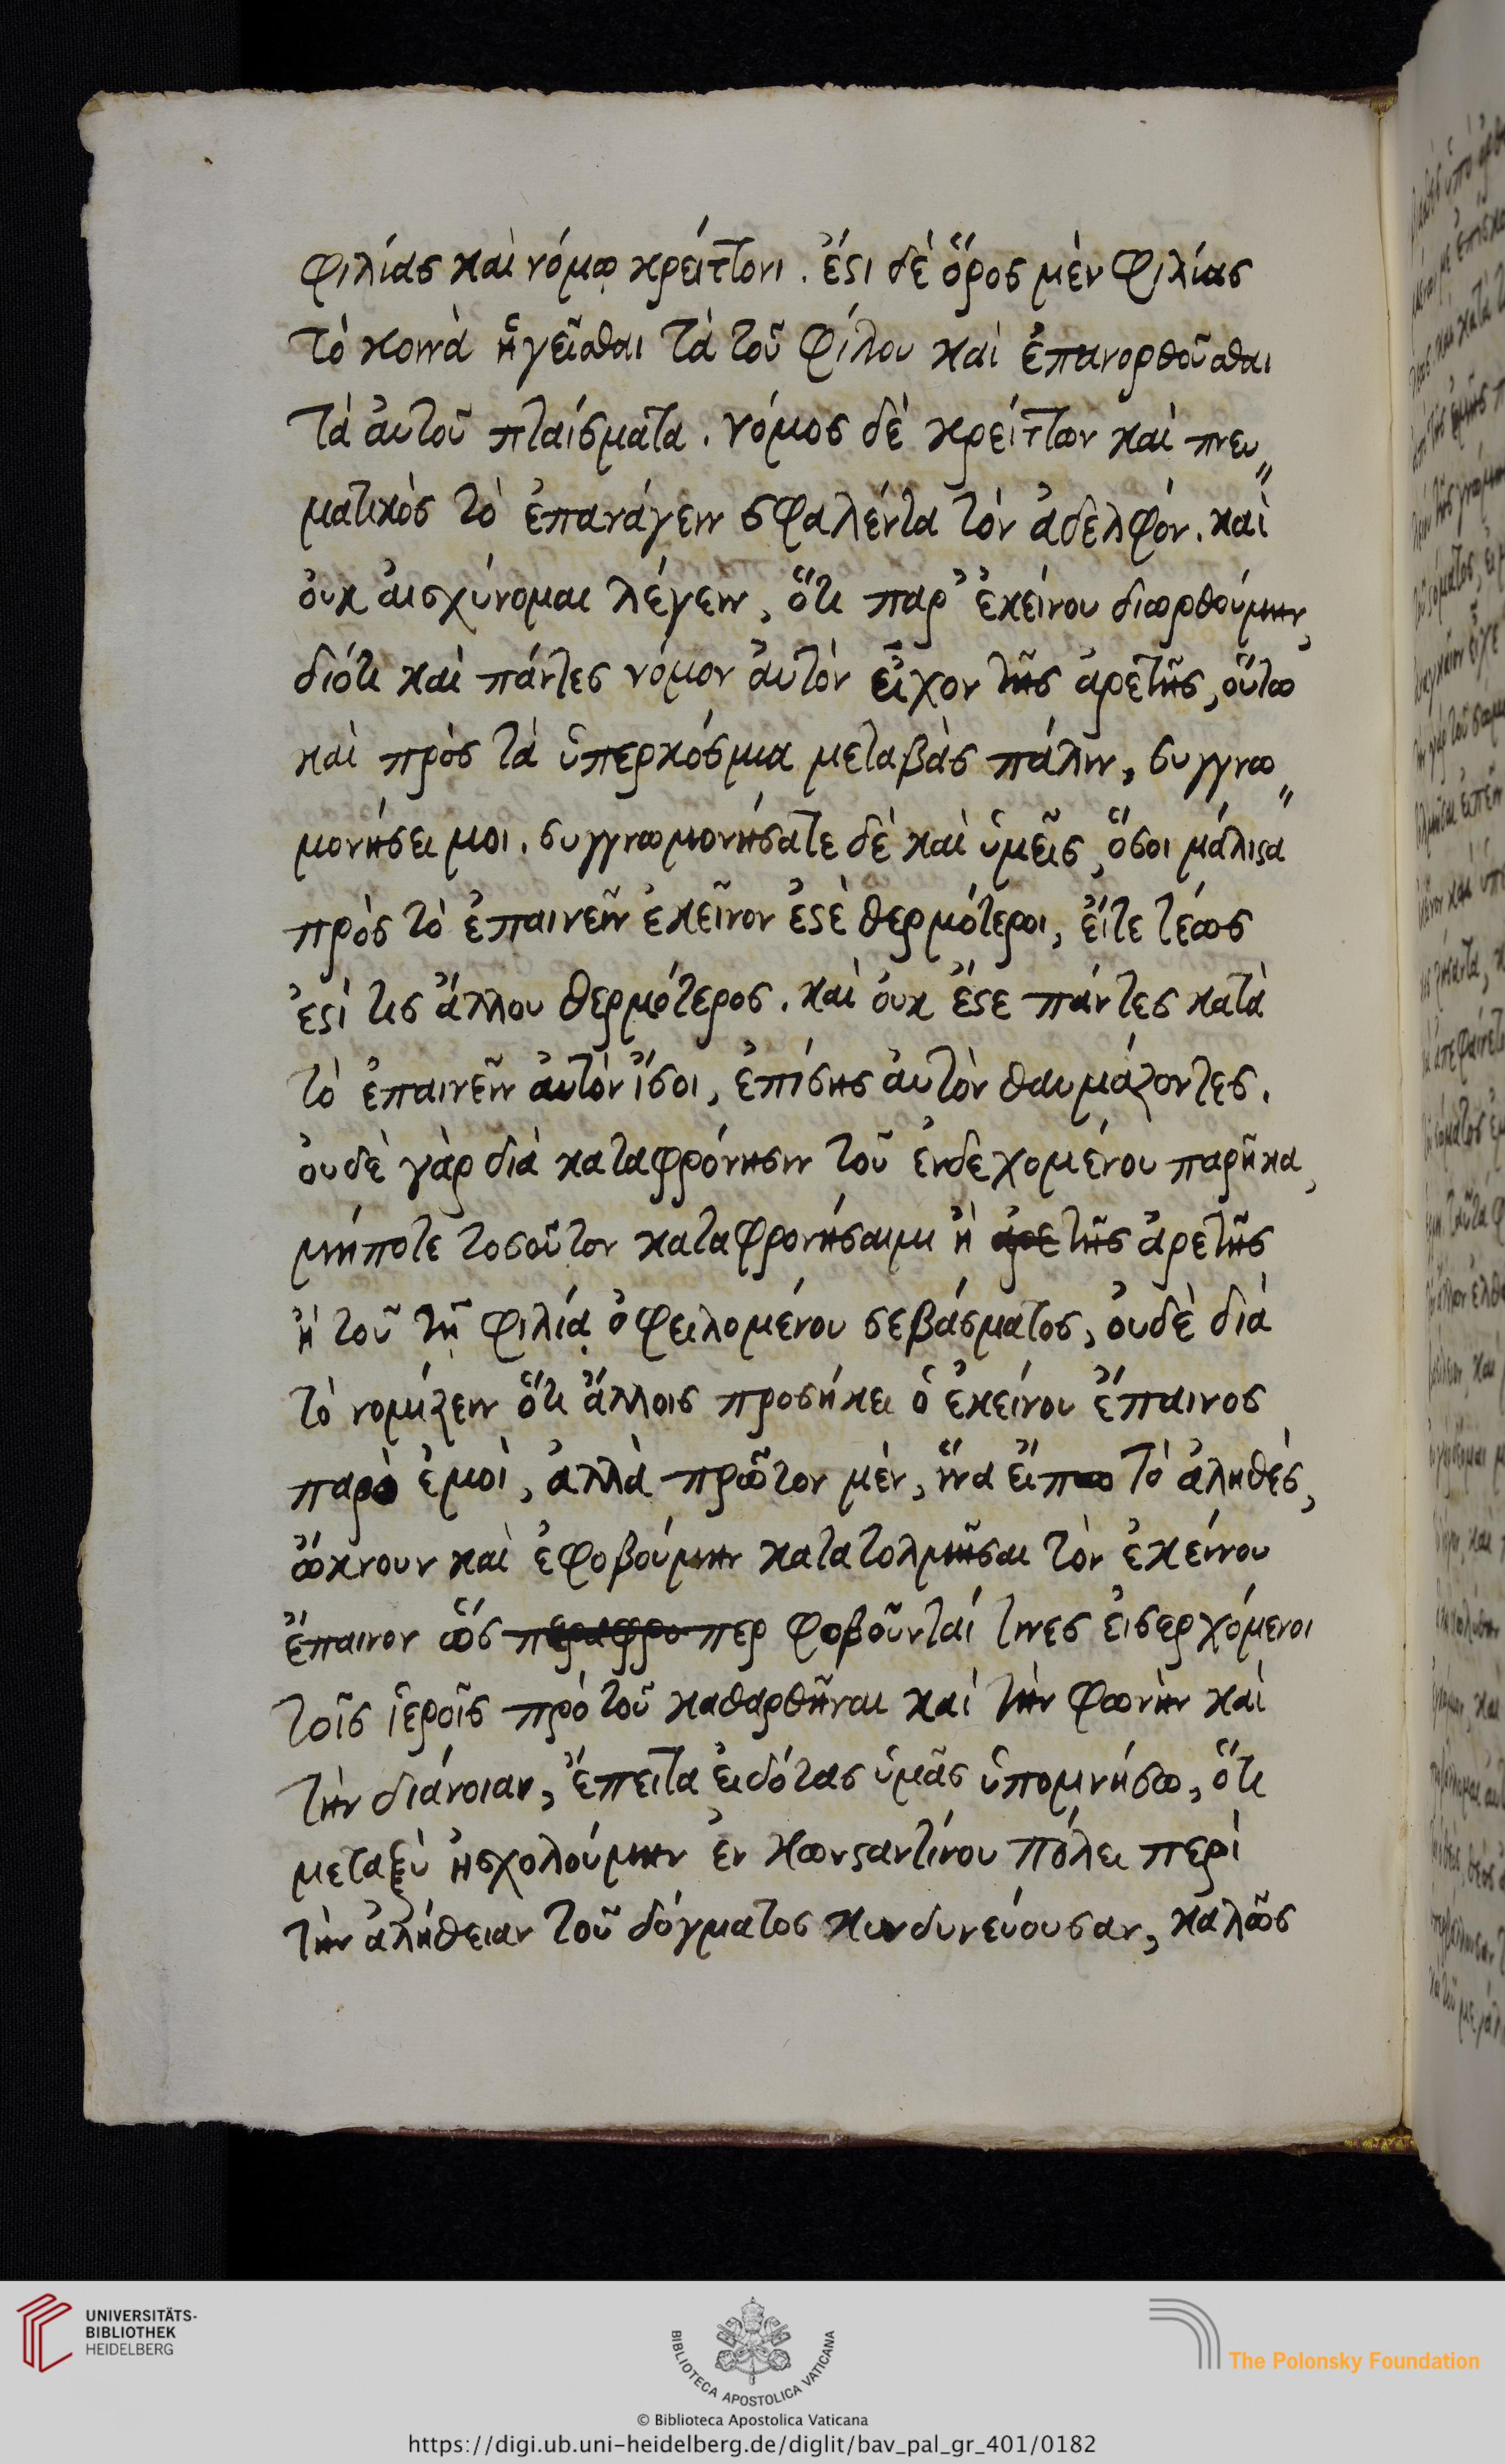 φιλίας καὶ νόμῳ κρείττονι. ἔστι δὲ ὅρος μὲν φιλίας
τὸ κοινὰ ἡγεῖσθαι τὰ τοῦ φίλου καὶ ἐπανορθοῦσθαι
τὰ ἀυτοῦ πταίσματα. νόμος δὲ κρείττων καὶ πνευ〃
ματικὸς τὸ ἐπανάγειν σφαλέντα τὸν ἀδελφόν. καὶ
ὀυκ ἀισχύνομαι λέγειν, ὅτι παρ' ἐκείνου διωρθούμην,
διότι καὶ πάντες νόμον ἀυτὸν εἶχον τῆς ἀρετῆς, οὕτω
καὶ πρὸς τὰ ὑπερκόσμια μεταβὰς πάλιν, συγγνω〃
μονήσει μοι. συγγνωμονήσατε δὲ καὶ ὑμεῖς, ὅσοι μάλιστα
πρὸς τὸ ἐπαινεῖν ἐκεῖνον ἐστὲ θερμότεροι, ἔιτε τέως
ἐστί τις ἄλλου θερμότερος. καὶ ὀυκ ἔστε πάντες κατὰ
τὸ ἐπαινεῖν ἀυτὸν ἴσοι, ἐπίσης ἀυτὸν θαυμάζοντες.
ὀυδὲ γὰρ διὰ καταφρόνησιν τοῦ ἐνδεχομένου παρῆκα,
μήποτε τοσοῦτον καταφρονήσαιμι ἢ ἀρετῆς ἀρετῆς
ἢ τοῦ τῇ φιλίᾳ ὀφειλομένου σεβάσματος, ὀυδὲ διὰ
τὸ νομίζειν ὅτι ἄλλοις προσήκει ὁ ἐκείνου ἔπαινος
παρὸ ἐμοὶ, ἀλλὰ πρῶτον μὲν, ἵνα ἔιπω τὸ ἀληθὲς,
ὤκνουν καὶ ἐφοβούμην κατατολμῆσαι τὸν ἐκείνου
ἔπαινον ὥσπερ φοβοῦνταί τινες ἐισερχόμενοι
τοῖς ἱεροῖς πρὸ τοῦ καθαρθῆναι καὶ τὴν φωνὴν καὶ
τὴν διάνοιαν, ἔπειτα ἐιδότας ὑμᾶς ὑπομνήσω, ὅτι
μεταξὺ ἠσχολούμην ἐν Κωνσταντίνου πόλει περὶ
τὴν ἀλήθειαν τοῦ δόγματος κινδυνεύουσαν, καλῶς
UNIVERSITÄTS-
BIBLIOTHEK
HEIDELBERG
BIBLIOTECA APOSTOLICA VATICANA
The Polonsky Foundation
© Biblioteca Apostolica Vaticana
https://digi.ub.uni-heidelberg.de/diglit/bav_pal_gr_401/0182